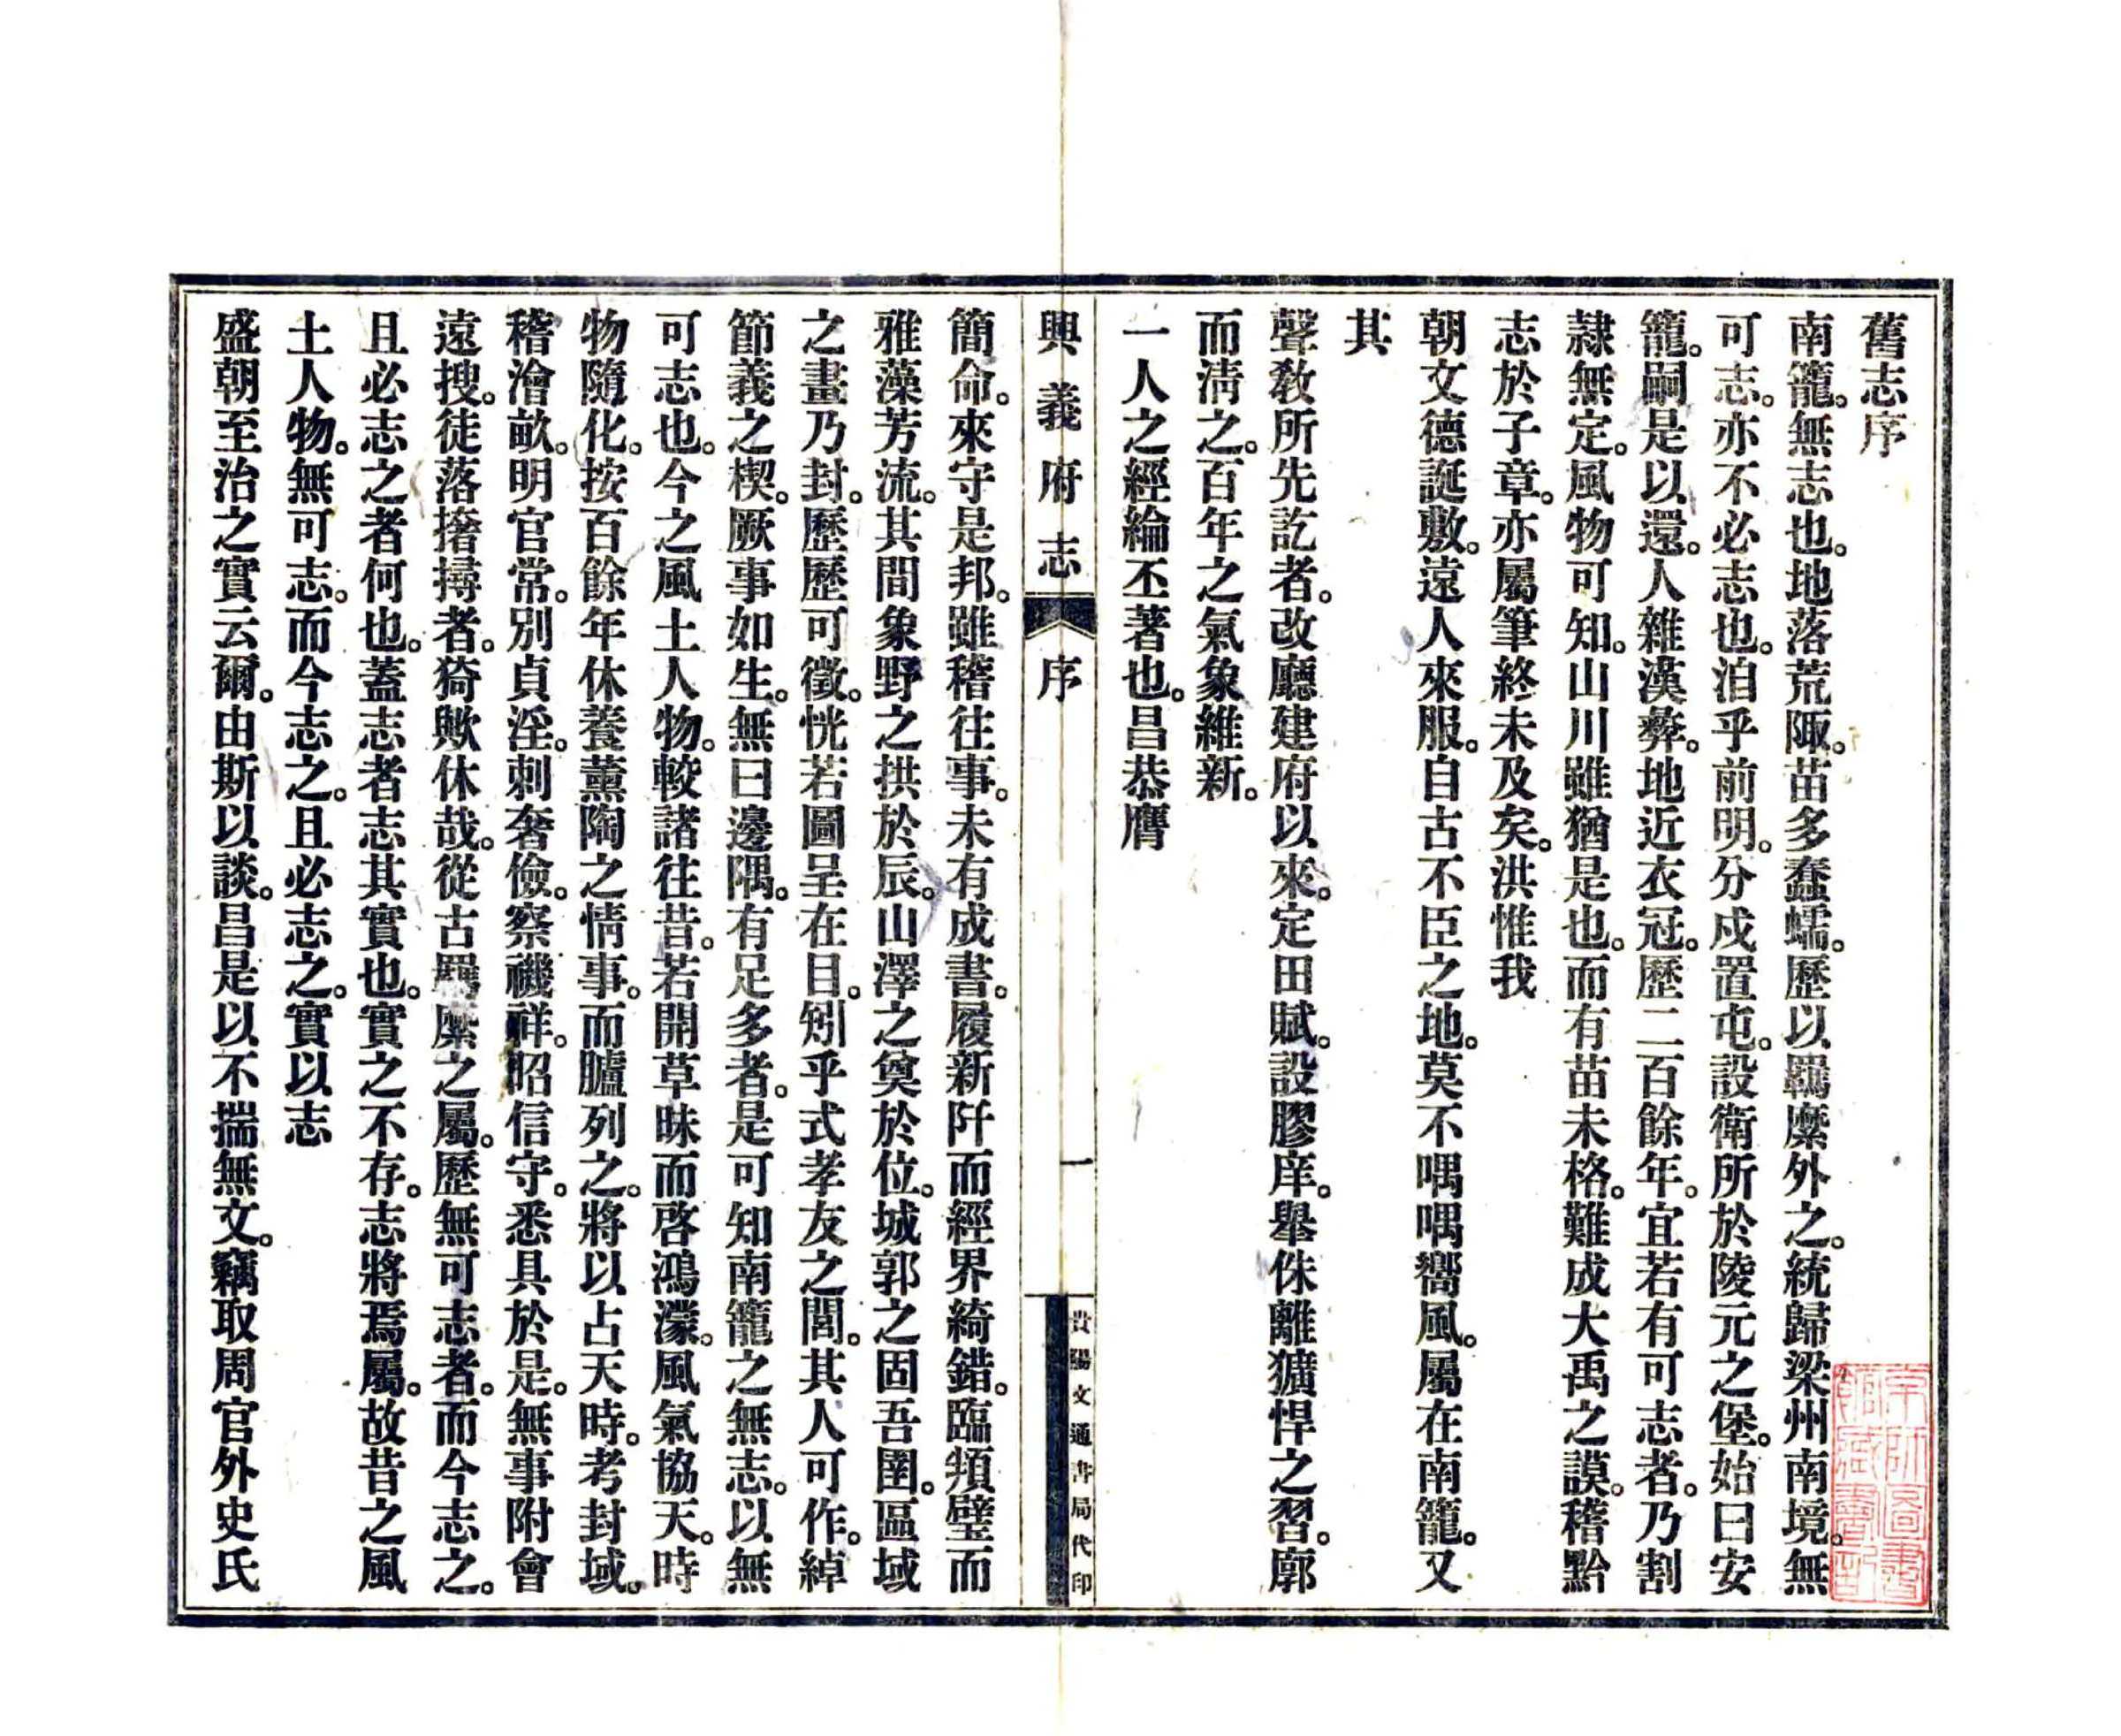 舊志序
南籠。無志也。地落荒陬。苗多蠢蠕。歷以羈縻外之。統歸梁州南境。無
可志。亦不必志也。洎乎前明。分戍置屯。設衛所於陵元之堡。始曰安
籠。嗣是以還。人雜漢彝。地近衣冠。歷二百餘年。宜若有可志者。乃割
隷無定。風物可知。山川雖猶是也。而有苗未格。難成大禹之謨。稽黔
志於子章。亦屬筆終未及矣。洪惟我
朝文德誕敷。遠人來服。自古不臣之地。莫不喁喁嚮風。屬在南籠。又
其
聲敎所先訖者。改廳建府以來。定田賦。設膠庠。舉侏離獷悍之習。廓
而淸之。百年之氣象維新。
一人之經綸丕著也。昌恭膺
興義府志 序 一 貴陽文通書局代印
簡命。來守是邦。雖稽往事。未有成書。履新阡而經界綺錯。臨頖璧而
雅藻芳流。其間象野之拱於辰。山澤之奠於位。城郭之固吾圉。區域
之畫乃封。歷歷可徵。恍若圖呈在目。矧乎式孝友之閭。其人可作。綽
節義之楔。厥事如生。無曰邊隅。有足多者。是可知南籠之無志。以無
可志也。今之風土人物。較諸往昔。若開草昧而啓鴻濛。風氣協天。時
物隨化。按百餘年休養薰陶之情事。而臚列之。將以占天時。考封域。
稽澮畝。明官常。別貞淫。刺奢儉。察禨祥。昭信守。悉具於是。無事附會
遠搜。徒落撦撏者。猗歟休哉。從古羈縻之屬。歷無可志者。而今志之。
且必志之者何也。蓋志者志其實也。實之不存。志將焉屬。故昔之風
土人物。無可志。而今志之。且必志之。實以志
盛朝至治之實云爾。由斯以談。昌是以不揣無文。竊取周官外史氏